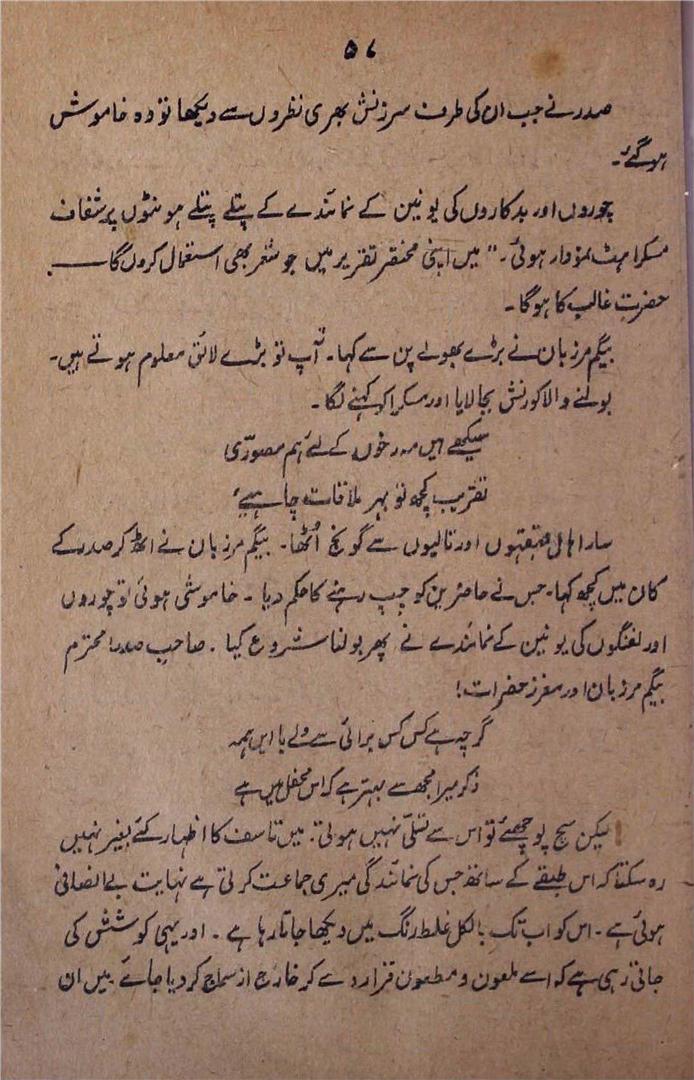 ۵۷
صدر نے جب ان کی طرف سرزنش بھری نظروں سے دیکھا تو وہ خاموش
ہو گئے۔
چوروں اور بدکاروں کی یونین کے نمائندے کے پتلے پتلے ہونٹوں پر شفاف
مسکراہٹ نمودار ہوئی۔ "میں اپنی مختصر تقریر میں جو شعر بھی استعمال کروں گا ——
حضرتِ غالب کا ہوگا۔
بیگم مرزبان نے بڑے بھولے پن سے کہا۔ "آپ تو بڑے لائق معلوم ہوتے ہیں۔
بولنے والا کورنش بجا لایا اور مسکرا کر کہنے لگا۔
سیکھے ہیں مہ رخوں کے لئے ہم مصوّری
تقریب کچھ تو بہرِ ملاقات چاہیئے
سارا ہال قہقہوں اور تالیوں سے گونج اُٹھا۔ بیگم مرزبان نے اٹھ کر صدر کے
کان میں کچھ کہا۔ جس نے حاضرین کو چپ رہنے کا حکم دیا۔ خاموشی ہوئی تو چوروں
اور لفنگوں کی یونین کے نمائندے نے پھر بولنا شروع کیا۔ صاحبِ صدر! محترم
بیگم مرزبان اور معزز حضرات!
گرچہ ہے کس کس برائی سے ولے با ایں ہمہ
ذکر میرا مجھ سے بہتر ہے کہ اس محفل میں ہے
لیکن سچ پوچھئے تو اس سے تسلّی نہیں ہوتی۔ میں تاسف کا اظہار کئے بغیر نہیں
رہ سکتا کہ اس طبقے کے ساتھ جس کی نمائندگی میری جماعت کرتی ہے نہایت بے انصافی
ہوئی ہے۔ اس کو اب تک بالکل غلط رنگ میں دیکھا جاتا رہا ہے۔ اور یہی کوشش کی
جاتی رہی ہے کہ اسے ملعون و مطعون قرار دے کر خارج از سماج کر دیا جائے میں ان